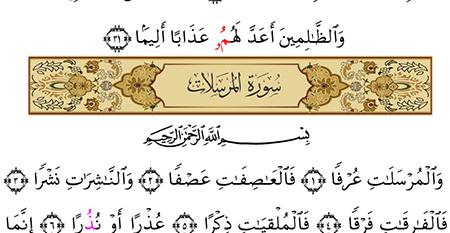 وَٱلظَّٰلِمِينَ أَعَدَّ لَهُمُۥ عَذَابًا أَلِيمَۢا ﴿٣١﴾
سُورَةُ المُرْسَلَات
بِسْمِ اللَّهِ الرَّحْمَٰنِ الرَّحِيمِ
وَٱلْمُرْسَلَٰتِ عُرْفٗا ﴿١﴾ فَٱلْعَٰصِفَٰتِ عَصْفٗا ﴿٢﴾ وَٱلنَّٰشِرَٰتِ نَشْرٗا ﴿٣﴾
فَٱلْفَٰرِقَٰتِ فَرْقٗا ﴿٤﴾ فَٱلْمُلْقِيَٰتِ ذِكْرًا ﴿٥﴾ عُذْرًا أَوْ نُذُرًا ﴿٦﴾ إِنَّمَا